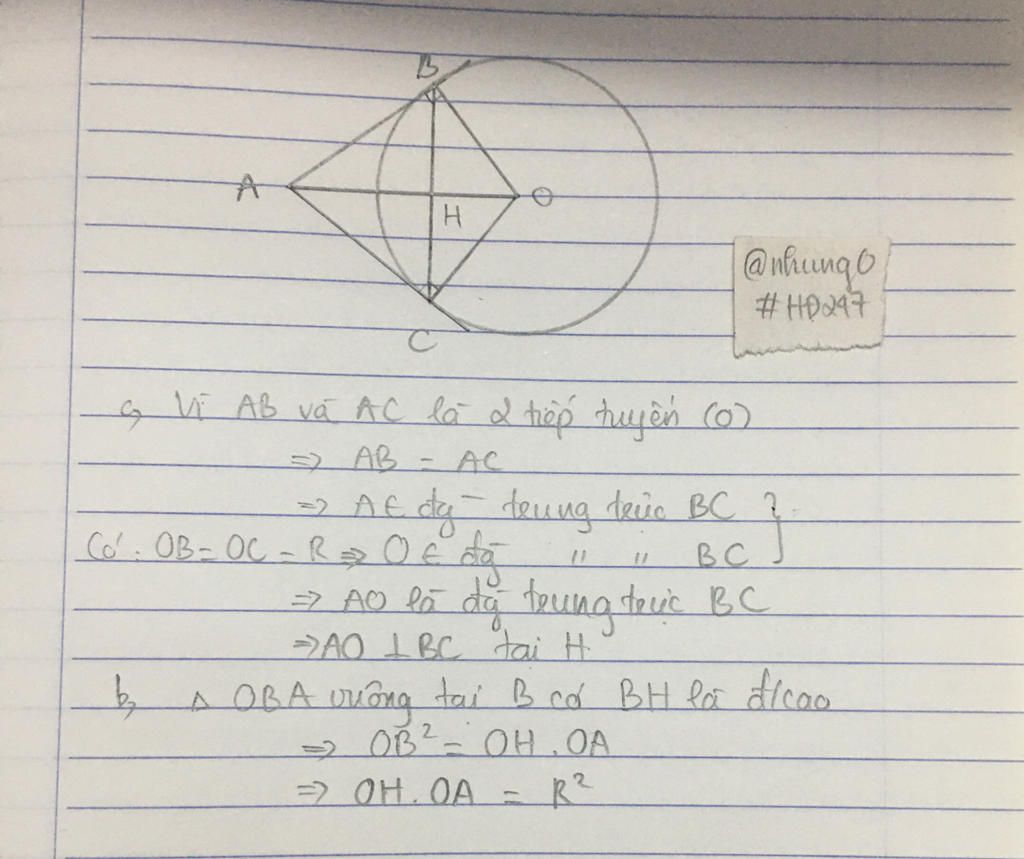 B
A
H
O
C
@nhungO
#HĐ247
a, Vì AB và AC là 2 tiếp tuyến (O)
=> AB = AC
=> A ∈ đg trung trực BC }
Có: OB = OC = R => O ∈ đg " " BC
=> AO là đg trung trực BC
=> AO ⊥ BC tại H
b, Δ OBA vuông tại B có BH là đ/cao
=> OB² = OH . OA
=> OH . OA = R²